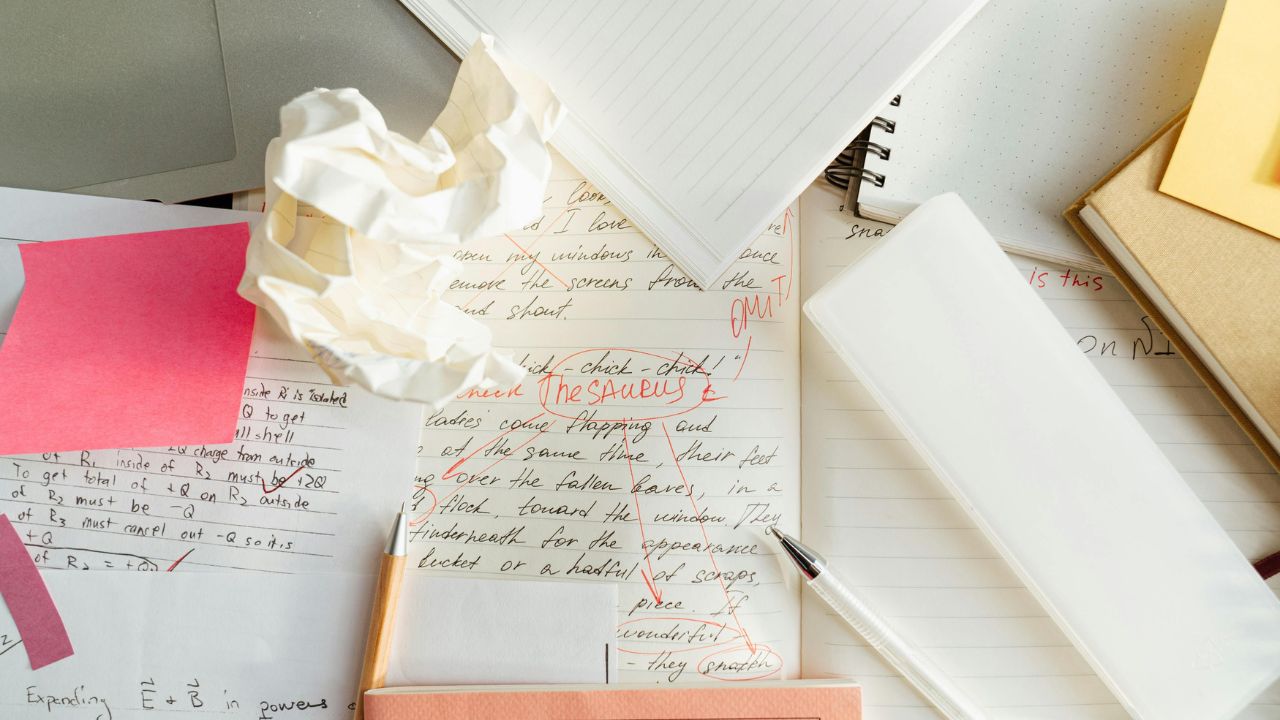 I love
open my windows in
once
emove the screens from the
and shout.
OMIT
ick - chick - chick!"
heck THESAURUS
ladies come flapping and
at the same time, their feet
over the fallen leaves, in a
flock, toward the window. They
underneath for the appearance
bucket or a hatful of scraps,
piece. If
wonderful
- they snatch
sna
is this
on
inside R is isolated
Q to get
all shell
charge from outside
of R₁ inside of R₂ must be +2Q
To get total of +Q on R₂ outside
of R₂ must be -Q
of R₃ must cancel out -Q so it is
+Q
of R₂ = +
Expanding E⃗ + B⃗ in powers